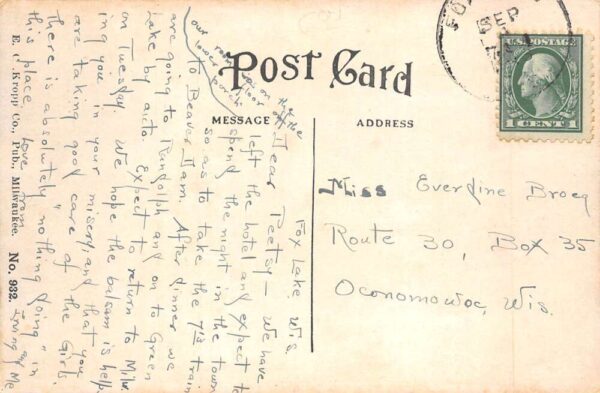 Post Card
MESSAGE
ADDRESS
SEP
U.S. POSTAGE
1 CENT 1
Miss Everdine Broeg
Route 30, Box 35
Oconomowoc, Wis.
Fox Lake, Wis.
Dear Peetsy — We have
left the hotel and expect to
spend the night in the town
so as to take the 7's train
to Beaver Dam. After dinner we
are going to Randolph and on to Green
Lake by auto. Expect to return to Milw.
on Tuesday. We hope the balsam is help-
ing you in your misery and that you
are taking good care of the Girls.
There is absolutely "nothing doing" in
this place. Love from
Irving and Me
our room is on this
floor off the
lower porch.
E. C. Kropp Co., Pub., Milwaukee. No. 932.